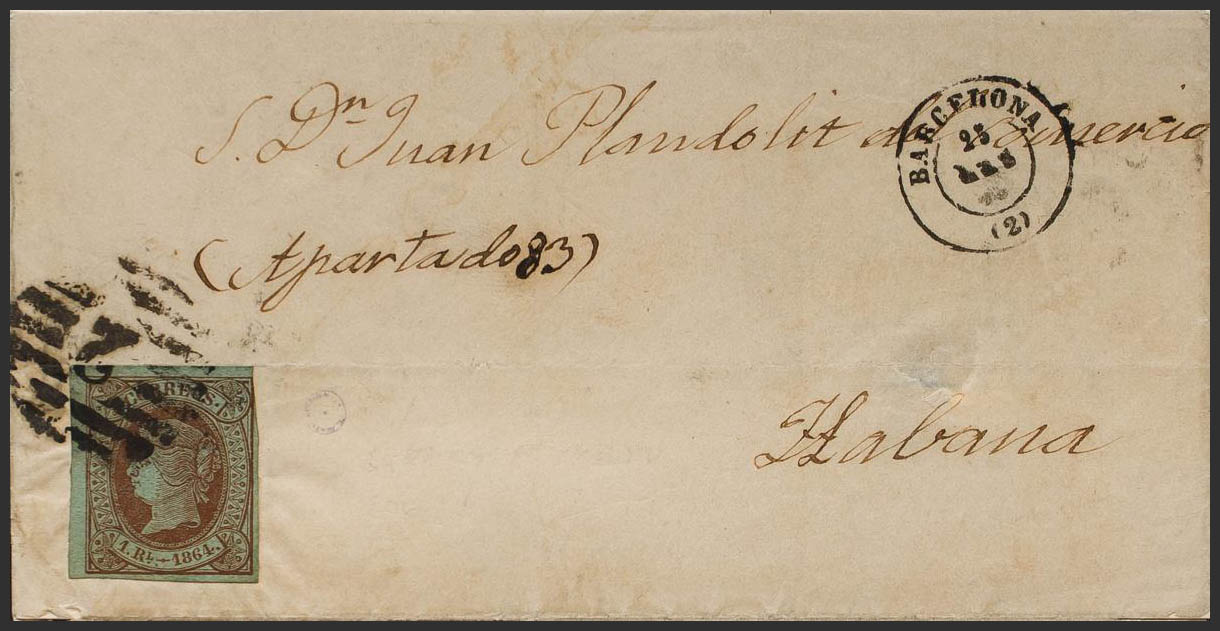 S. Dn Juan Plandolit del Comercio
(Apartado 83)
Habana
BARCELONA
25
(2)
CORREOS.
1. RL. - 1864.